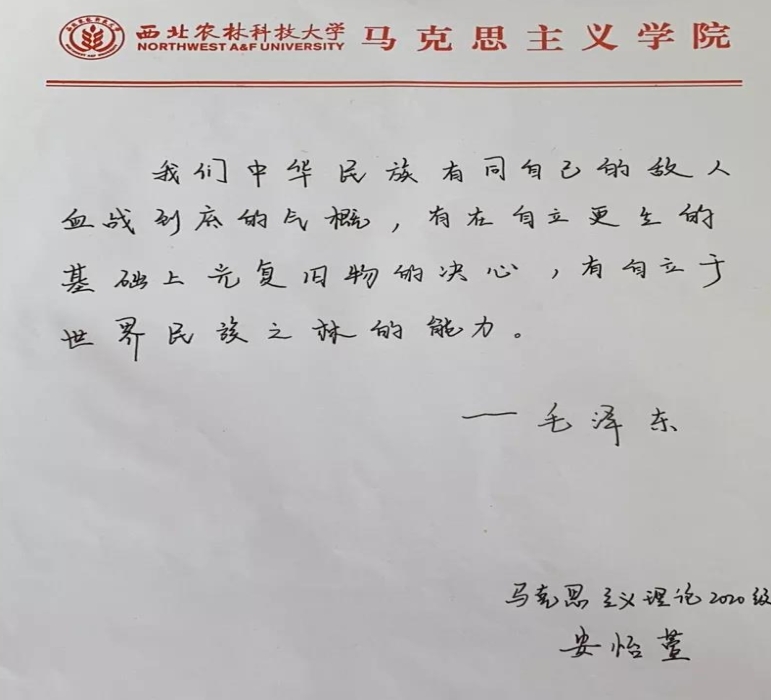 西北农林科技大学 马克思主义学院
NORTHWEST A&F UNIVERSITY
我们中华民族有同自己的敌人
血战到底的气概，有在自立更生的
基础上光复旧物的决心，有自立于
世界民族之林的能力。
——毛泽东
马克思主义理论2020级
安怡萱